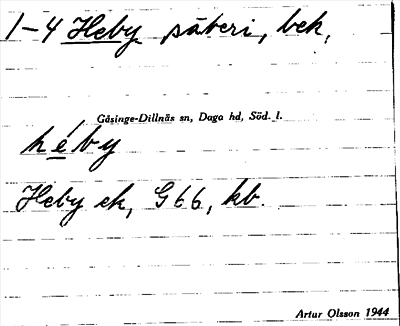 1-4 Heby säteri, bek.
Gåsinge-Dillnäs sn, Daga hd, Söd. l.
héby
Heby ek, G 66, kb.
Artur Olsson 1944